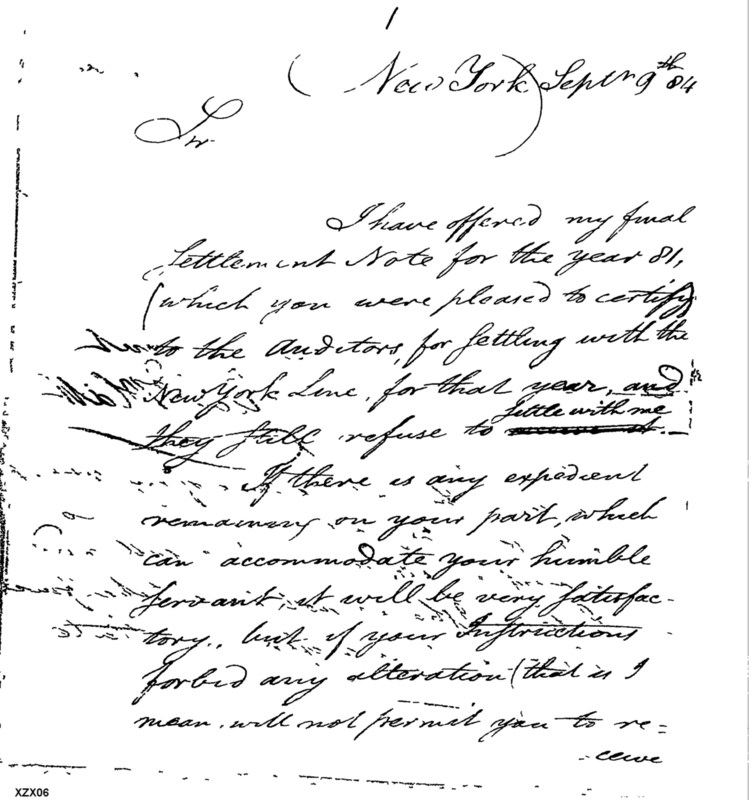 1
(New York) Septr 9th 84
Sir
I have offered my final
Settlement Note for the year 81,
(which you were pleased to certify
to the Auditors, for Settling with the
New York Line, for that year, and
settle with me
they Still refuse to
If there is any expedient
remaining on your part, which
can accommodate your humble
Servant, it will be very Satisfac-
tory, but if your Instructions
forbid any alteration (that is I
mean, will not permit you to re=
-ceive
XZX06